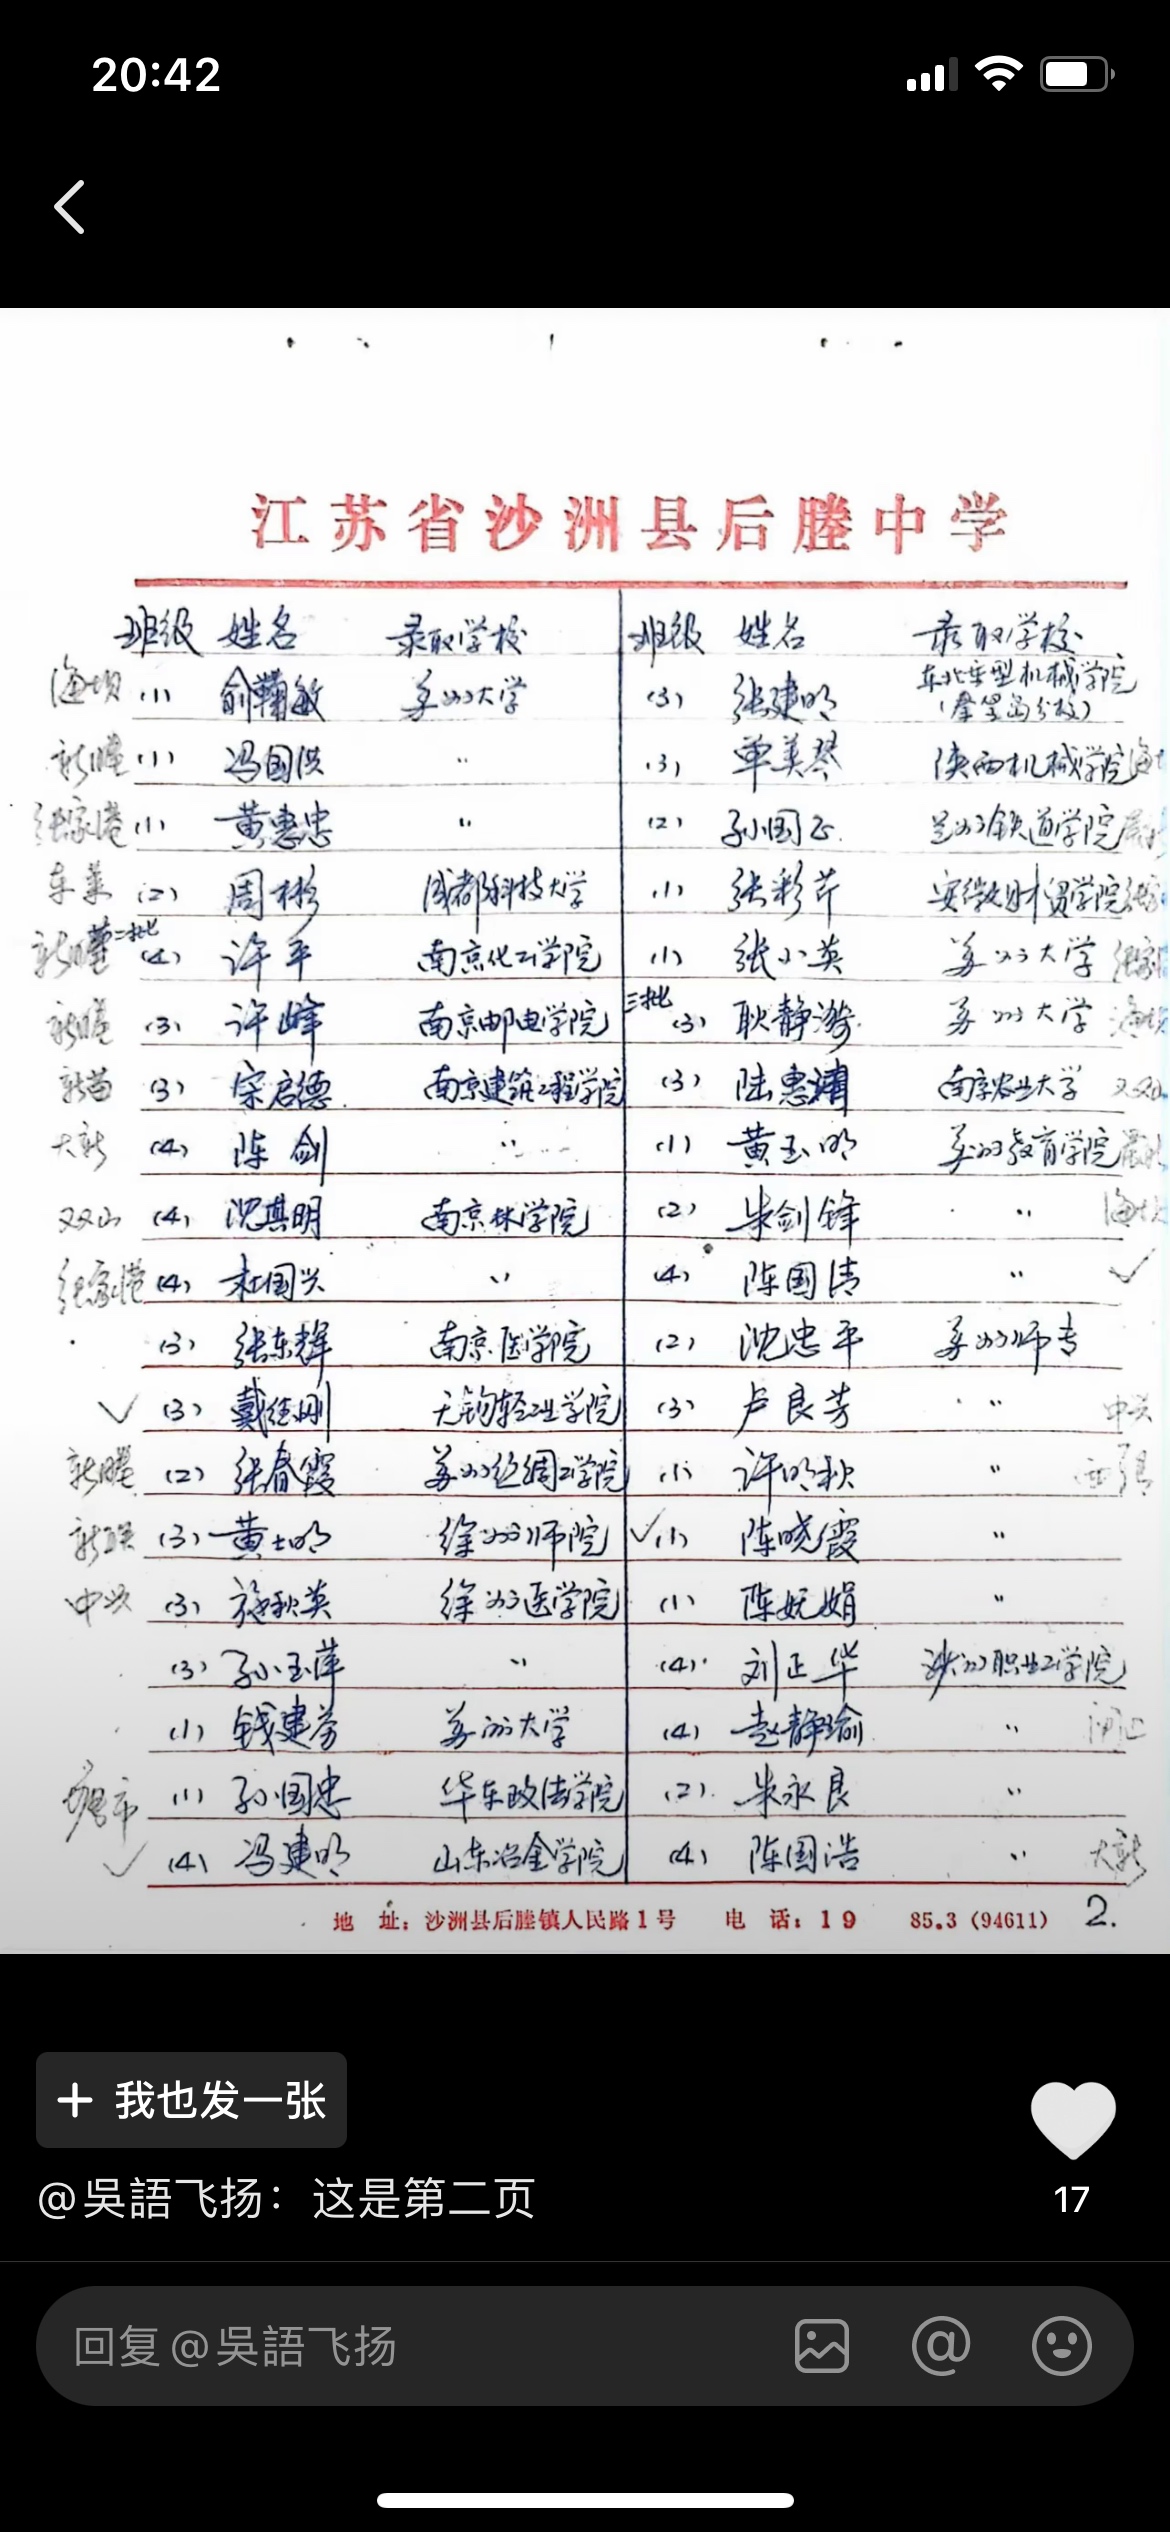 20:42
江苏省沙洲县后塍中学
班级 姓名 录取学校 班级 姓名 录取学校
海坝 (1) 俞鞠敏 苏州大学 (3) 张建明 东北重型机械学院
(秦皇岛分校)
新塍 (1) 冯国洪 〃 (3) 单美琴 陕西机械学院
张家港 (1) 黄惠忠 〃 (2) 孙国正 兰州铁道学院
东莱 (2) 周彬 成都科技大学 (1) 张彩芹 安徽财贸学院
二批 (4) 许平 南京化工学院 (1) 张小英 苏州大学
新塍 (3) 许峰 南京邮电学院 三批 (3) 耿静漪 苏州大学 海坝
(3) 宋启德 南京建筑工程学院 (3) 陆惠 南京农业大学 双山
大新 (4) 陈剑 〃 (1) 黄玉明 苏州教育学院
双山 (4) 沈其明 南京林学院 (2) 朱剑锋 〃 海坝
张家港 (4) 杜国兴 〃 (4) 陈国清 〃
(3) 张东辉 南京医学院 (2) 沈忠平 苏州师专
(3) 戴红刚 无锡轻工业学院 (3) 卢良芳 〃 中兴
新塍 (2) 张春霞 苏州丝绸工学院 (1) 许明秋 〃 西张
(3) 黄士明 徐州师院 (1) 陈晓霞 〃
中兴 (3) 施秋英 徐州医学院 (1) 陈妩娟 〃
(3) 孙玉萍 〃 (4) 刘正华 沙洲职业工学院
(1) 钱建芬 苏州大学 (4) 赵静瑜 〃
塘市 (1) 孙国忠 华东政法学院 (2) 朱永良 〃
(4) 冯建明 山东冶金学院 (4) 陈国浩 〃 大新
地 址：沙洲县后塍镇人民路1号 电 话：19 85.3 (94611) 2.
+ 我也发一张
@吳語飞扬：这是第二页
17
回复 @吳語飞扬